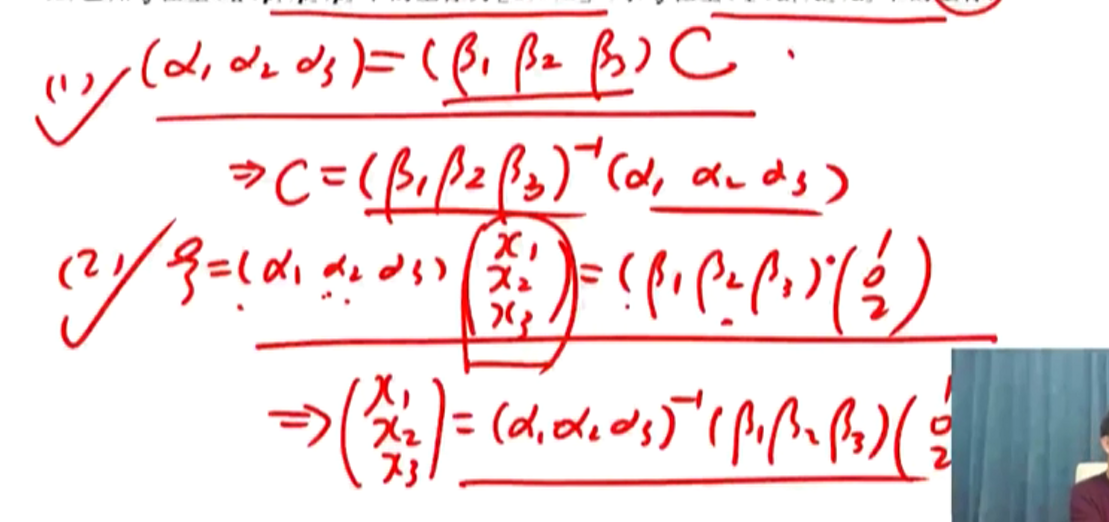 (1) (α₁ α₂ α₃) = (β₁ β₂ β₃) C
⇒ C = (β₁ β₂ β₃)⁻¹ (α₁ α₂ α₃)
(2) ξ = (α₁ α₂ α₃) (x₁ x₂ x₃) = (β₁ β₂ β₃) · (1 0 2)
⇒ (x₁ x₂ x₃) = (α₁ α₂ α₃)⁻¹ (β₁ β₂ β₃) (1 0 2